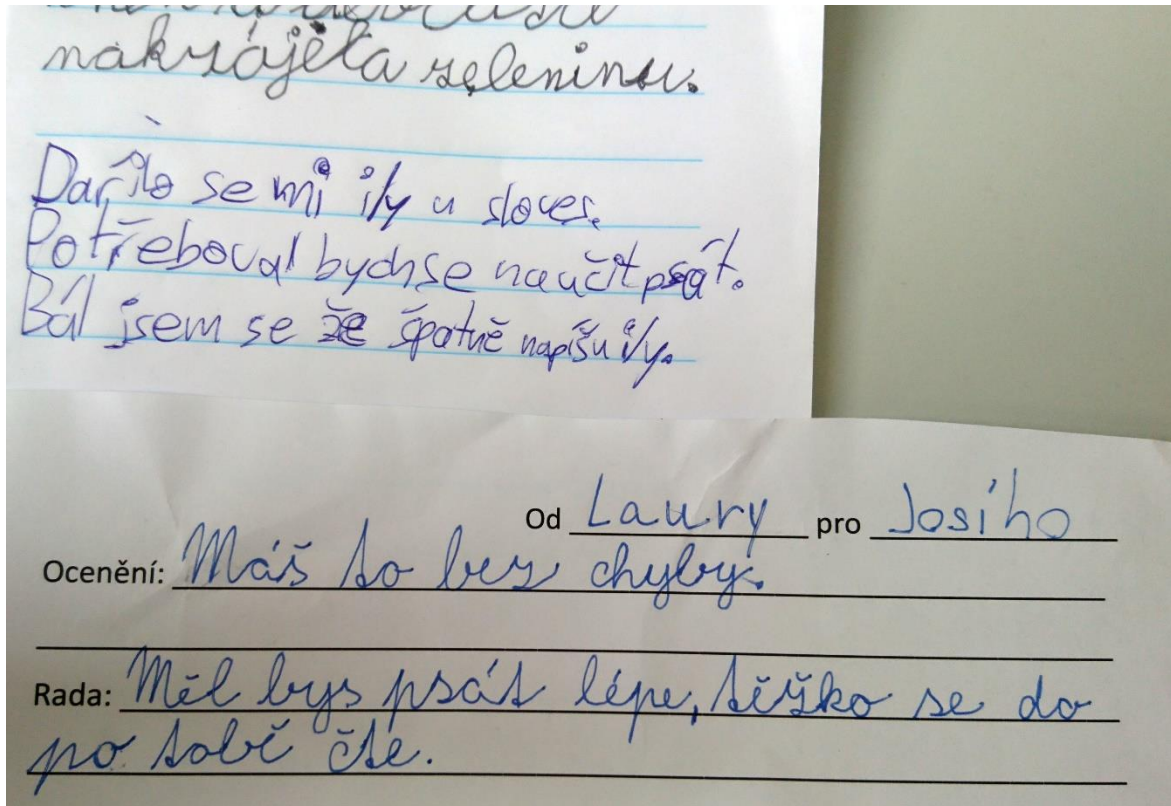 nakrájela zeleninu.
Dařilo se mi i/y u sloves.
Potřeboval bych se naučit psát.
Bál jsem se že špatně napíšu i/y.
Od Laury pro Josího
Ocenění: Máš to bez chyby.
Rada: Měl bys psát lépe, těžko se do
po tobě čte.